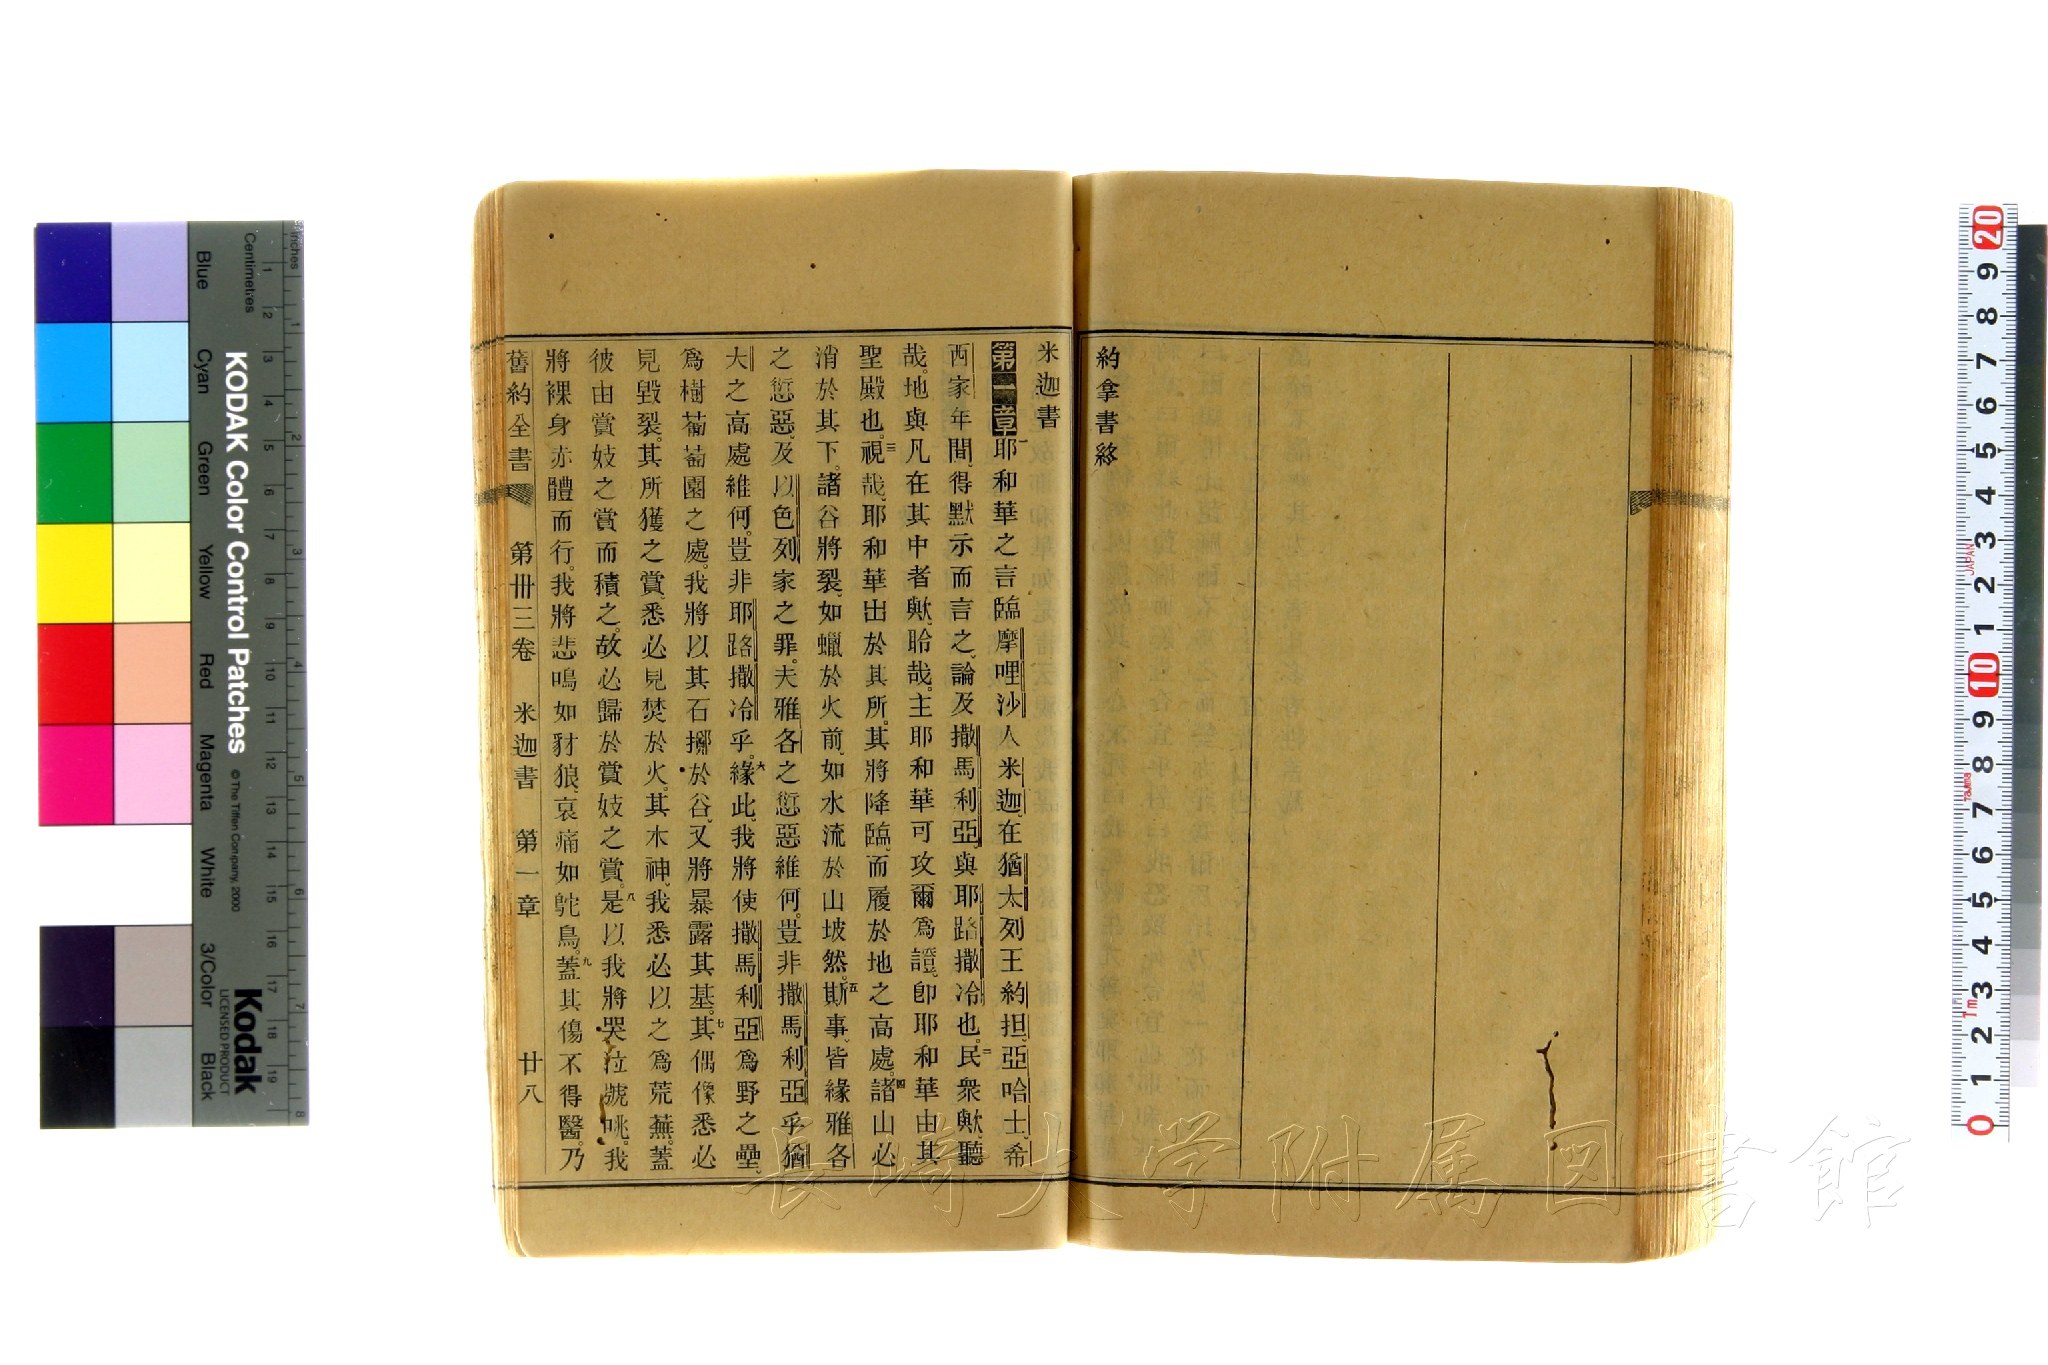 約拿書終
米迦書
第一章 一耶和華之言臨摩哩沙人米迦、在猶太列王約担、亞哈士、希
西家年間、得默示而言之、論及撒馬利亞、與耶路撒冷也。二民衆歟、聽
哉。地與凡在其中者歟、聆哉。主耶和華可攻爾爲證。卽耶和華由其
聖殿也。三視哉、耶和華出於其所。其將降臨、而履於地之高處。四諸山必
消於其下。諸谷將裂、如蠟於火前、如水流於山坡然。五斯事、皆緣雅各
之愆惡、及以色列家之罪。夫雅各之愆惡維何。豈非撒馬利亞乎、猶
大之高處維何。豈非耶路撒冷乎。六緣此、我將使撒馬利亞爲野之壘、
爲樹葡萄園之處。我將以其石擲於谷、又將暴露其基。七其偶像悉必
見毀裂。其所獲之賞、悉必見焚於火。其木神、我悉必以之爲荒蕪。蓋
彼由賞妓之賞而積之。故必歸於賞妓之賞。八是以我將哭泣號咷。我
將裸身赤體而行。我將悲鳴如豺狼、哀痛如鴕鳥。九蓋其傷不得醫。乃
舊約全書 第卅三卷 米迦書 第一章 廿八
KODAK Color Control Patches
© The Tiffen Company, 2000
Kodak
LICENSED PRODUCT
Blue Cyan Green Yellow Red Magenta White 3/Color Black
Centimetres 1 2 3 4 5 6 7 8 9 10 11 12 13 14 15 16 17 18 19
Inches 1 2 3 4 5 6 7 8
20 9 8 7 6 5 4 3 2 1 10 9 8 7 6 5 4 3 2 1 0
JAPAN
Tajima
1m
長崎大学附属図書館